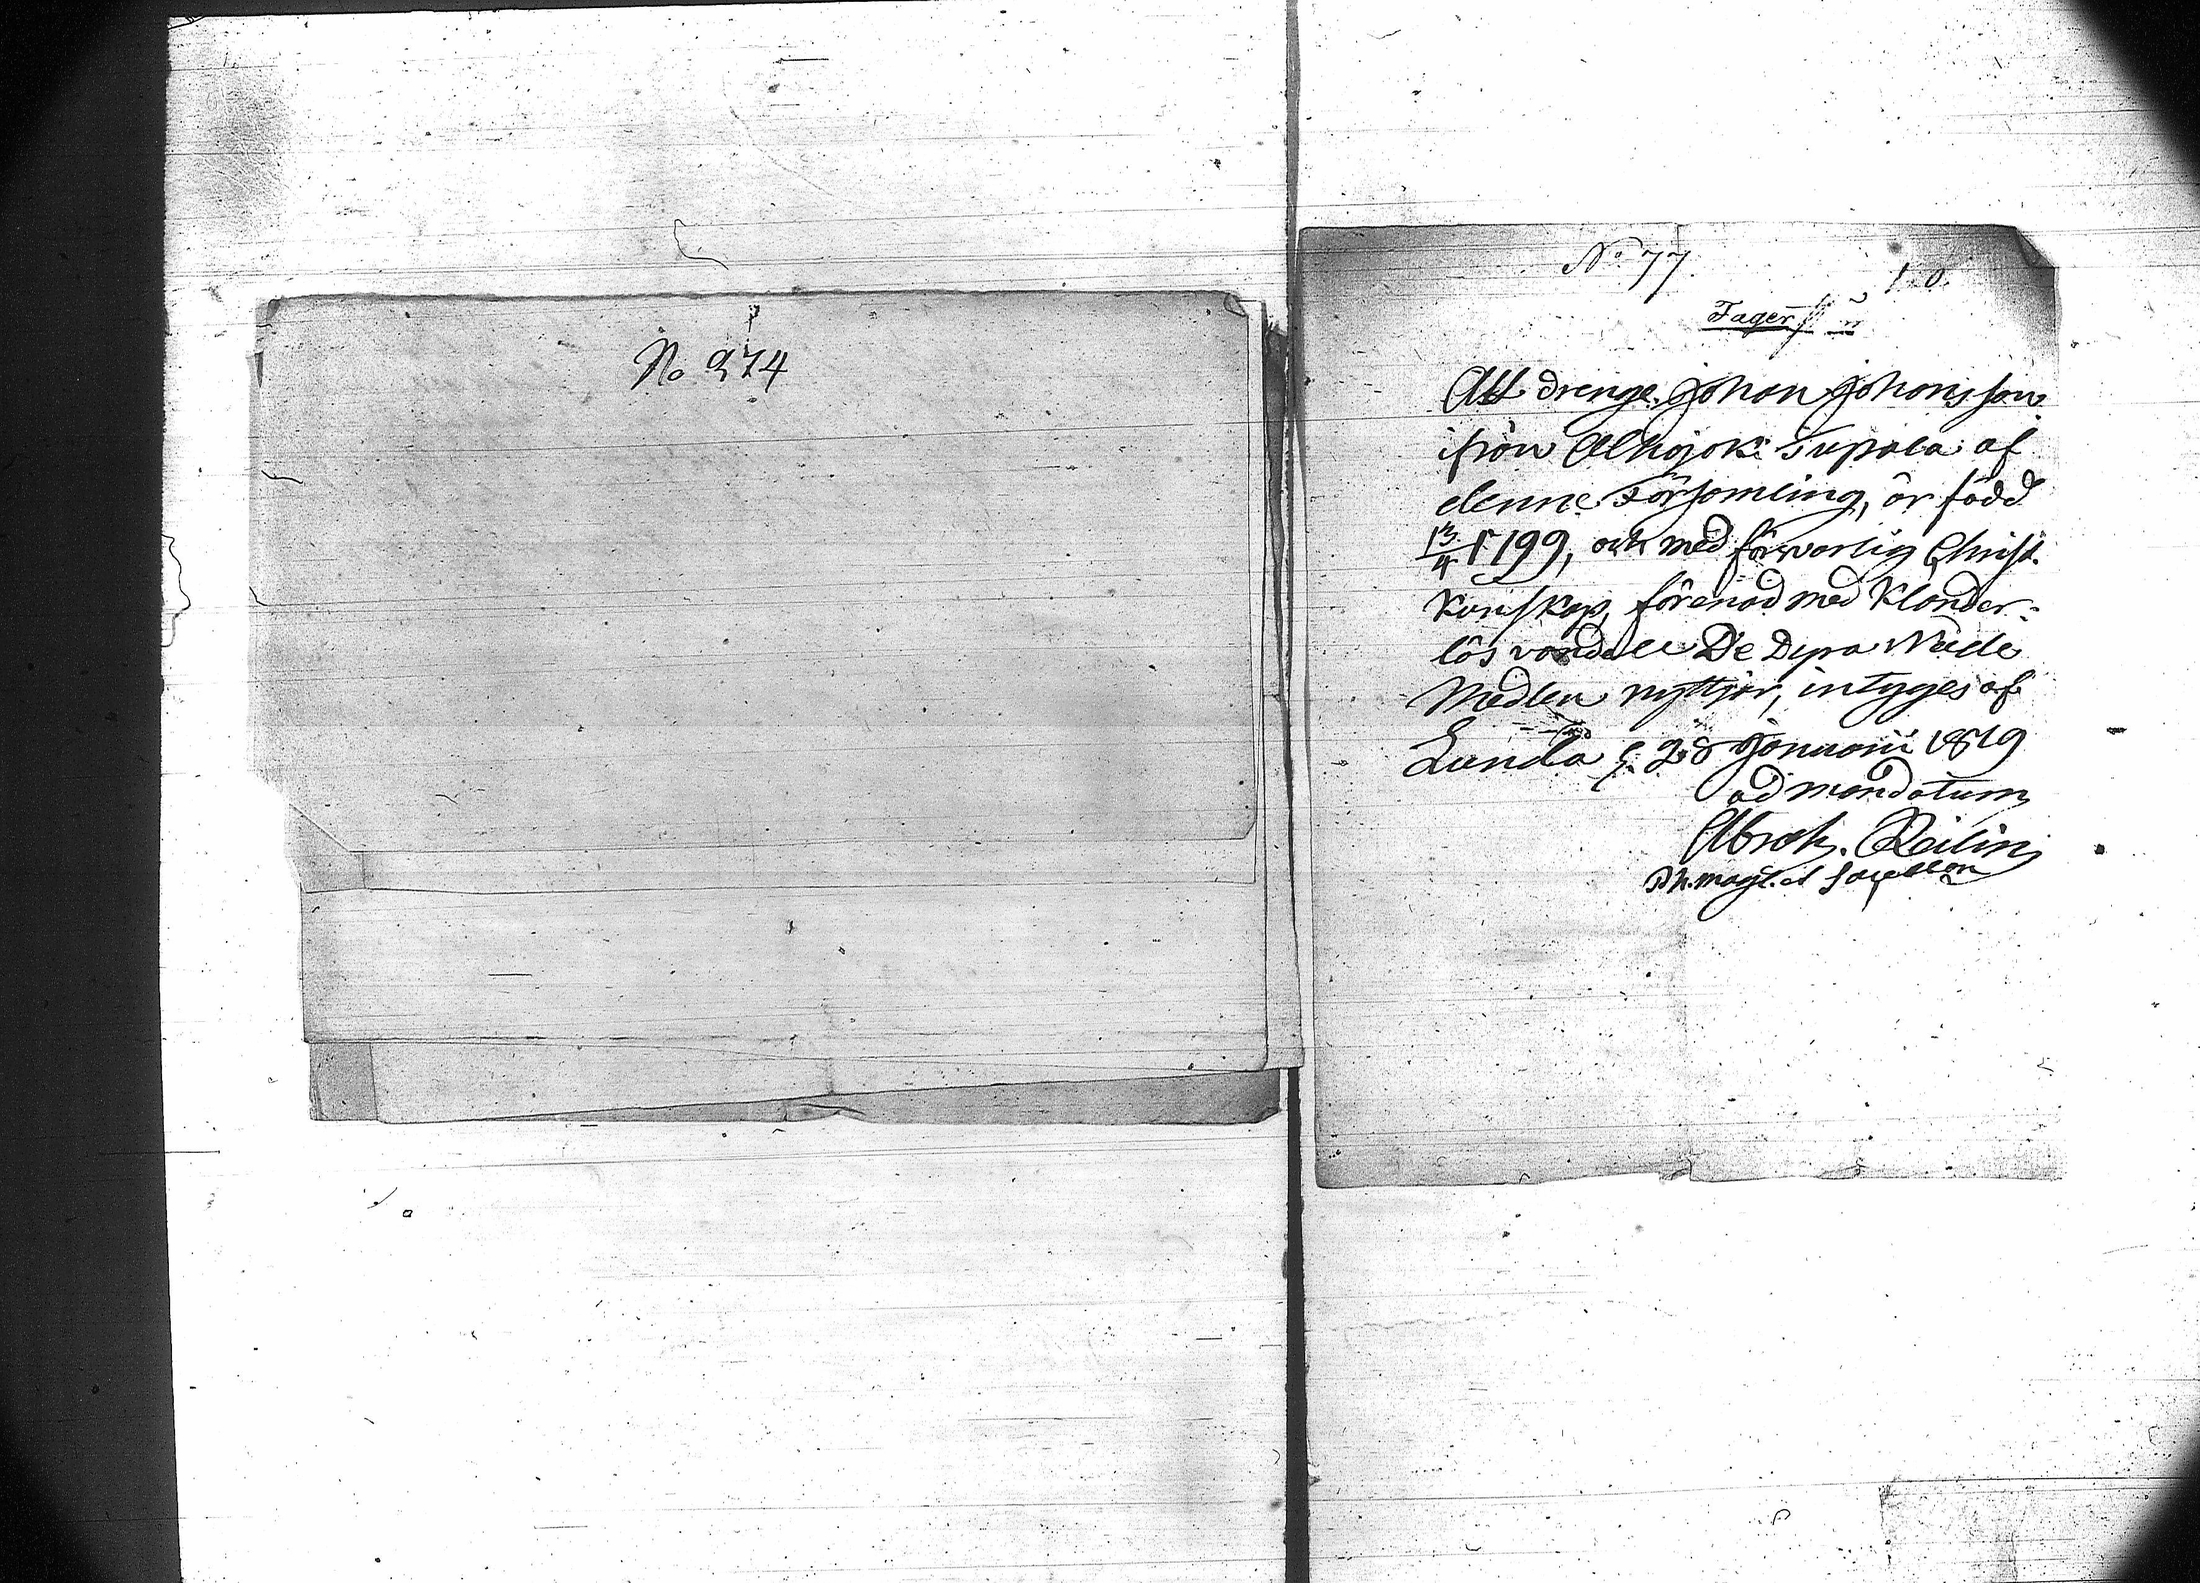 No 274
No 77
Att drenge. Johan Johansson
ifrån Alhojoki Supala af
denne Församling, är född
13/4 1799, och med försvarlig Christ.
kunskap, förenad med klander-
lös vandel De Dyra Nåde
Medlen nyttjar, intyges af
Lunda d. 28 Januarii 1819
ad mandatum
Abrah. Reilin
Ph. mag. et Sacellan